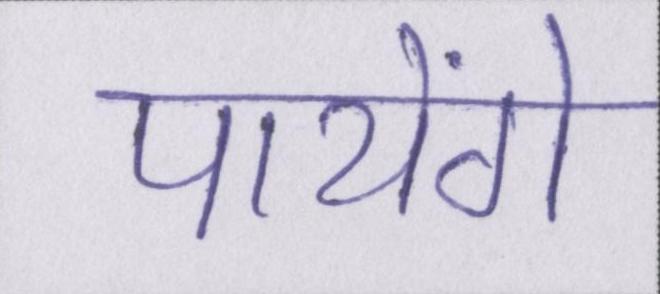 पायेंगे